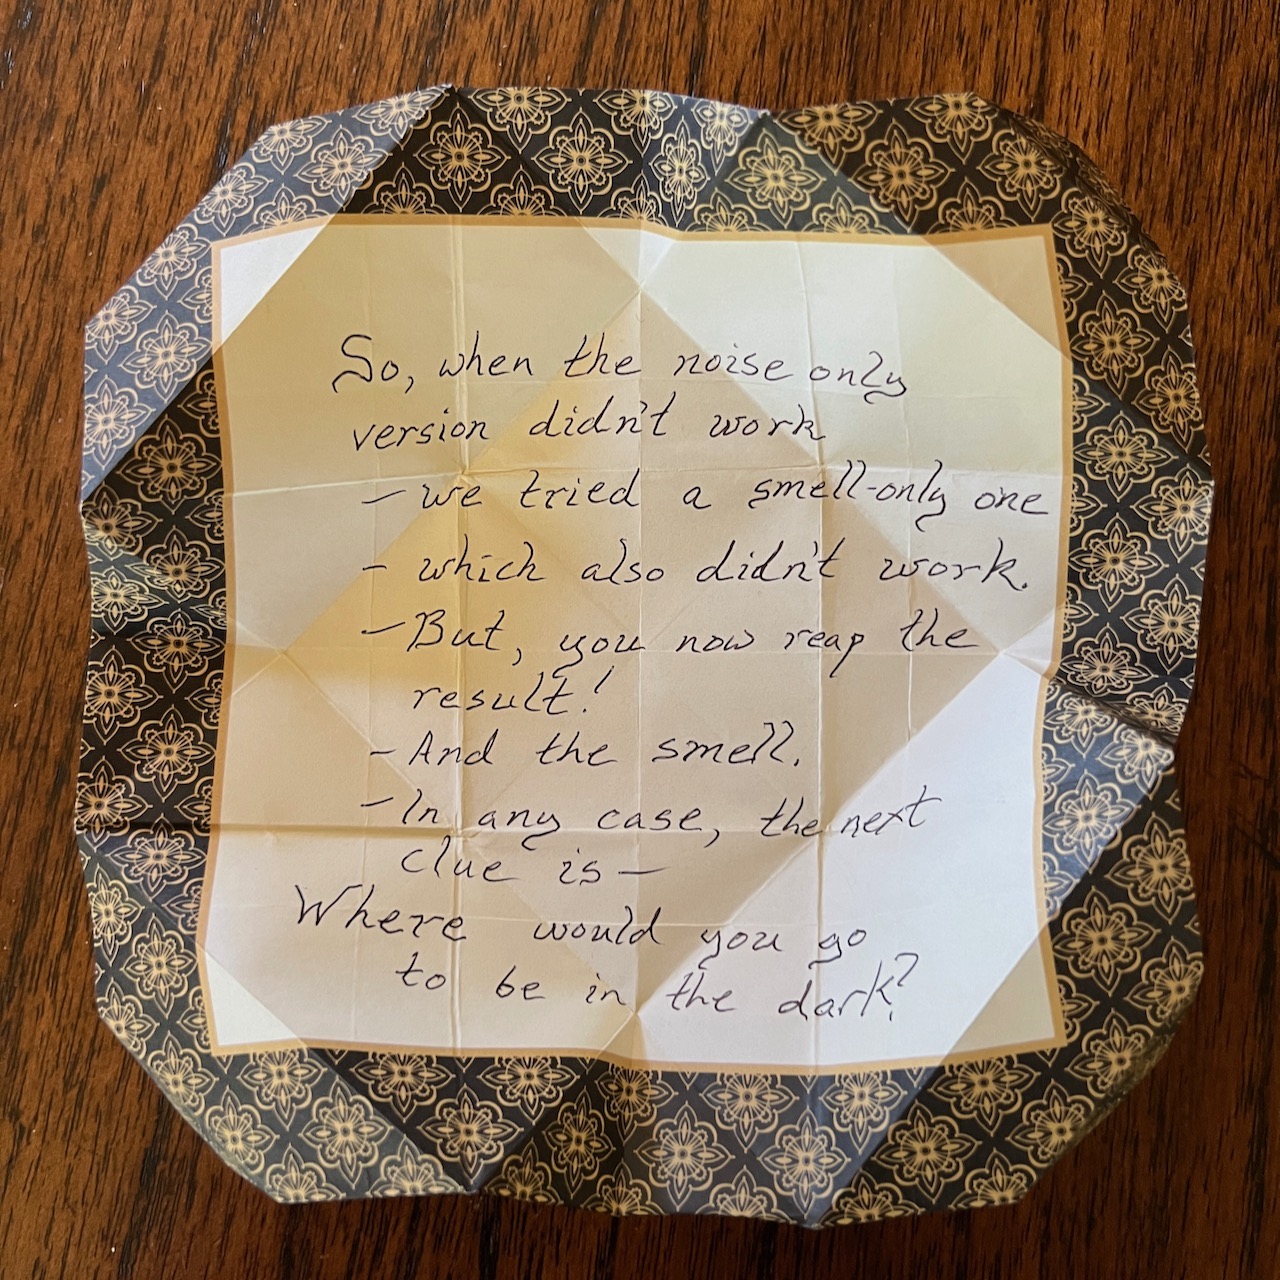 So, when the noise only
version didn't work
- we tried a smell-only one
- which also didn't work.
- But, you now reap the
result!
- And the smell.
- In any case, the next
clue is -
Where would you go
to be in the dark?